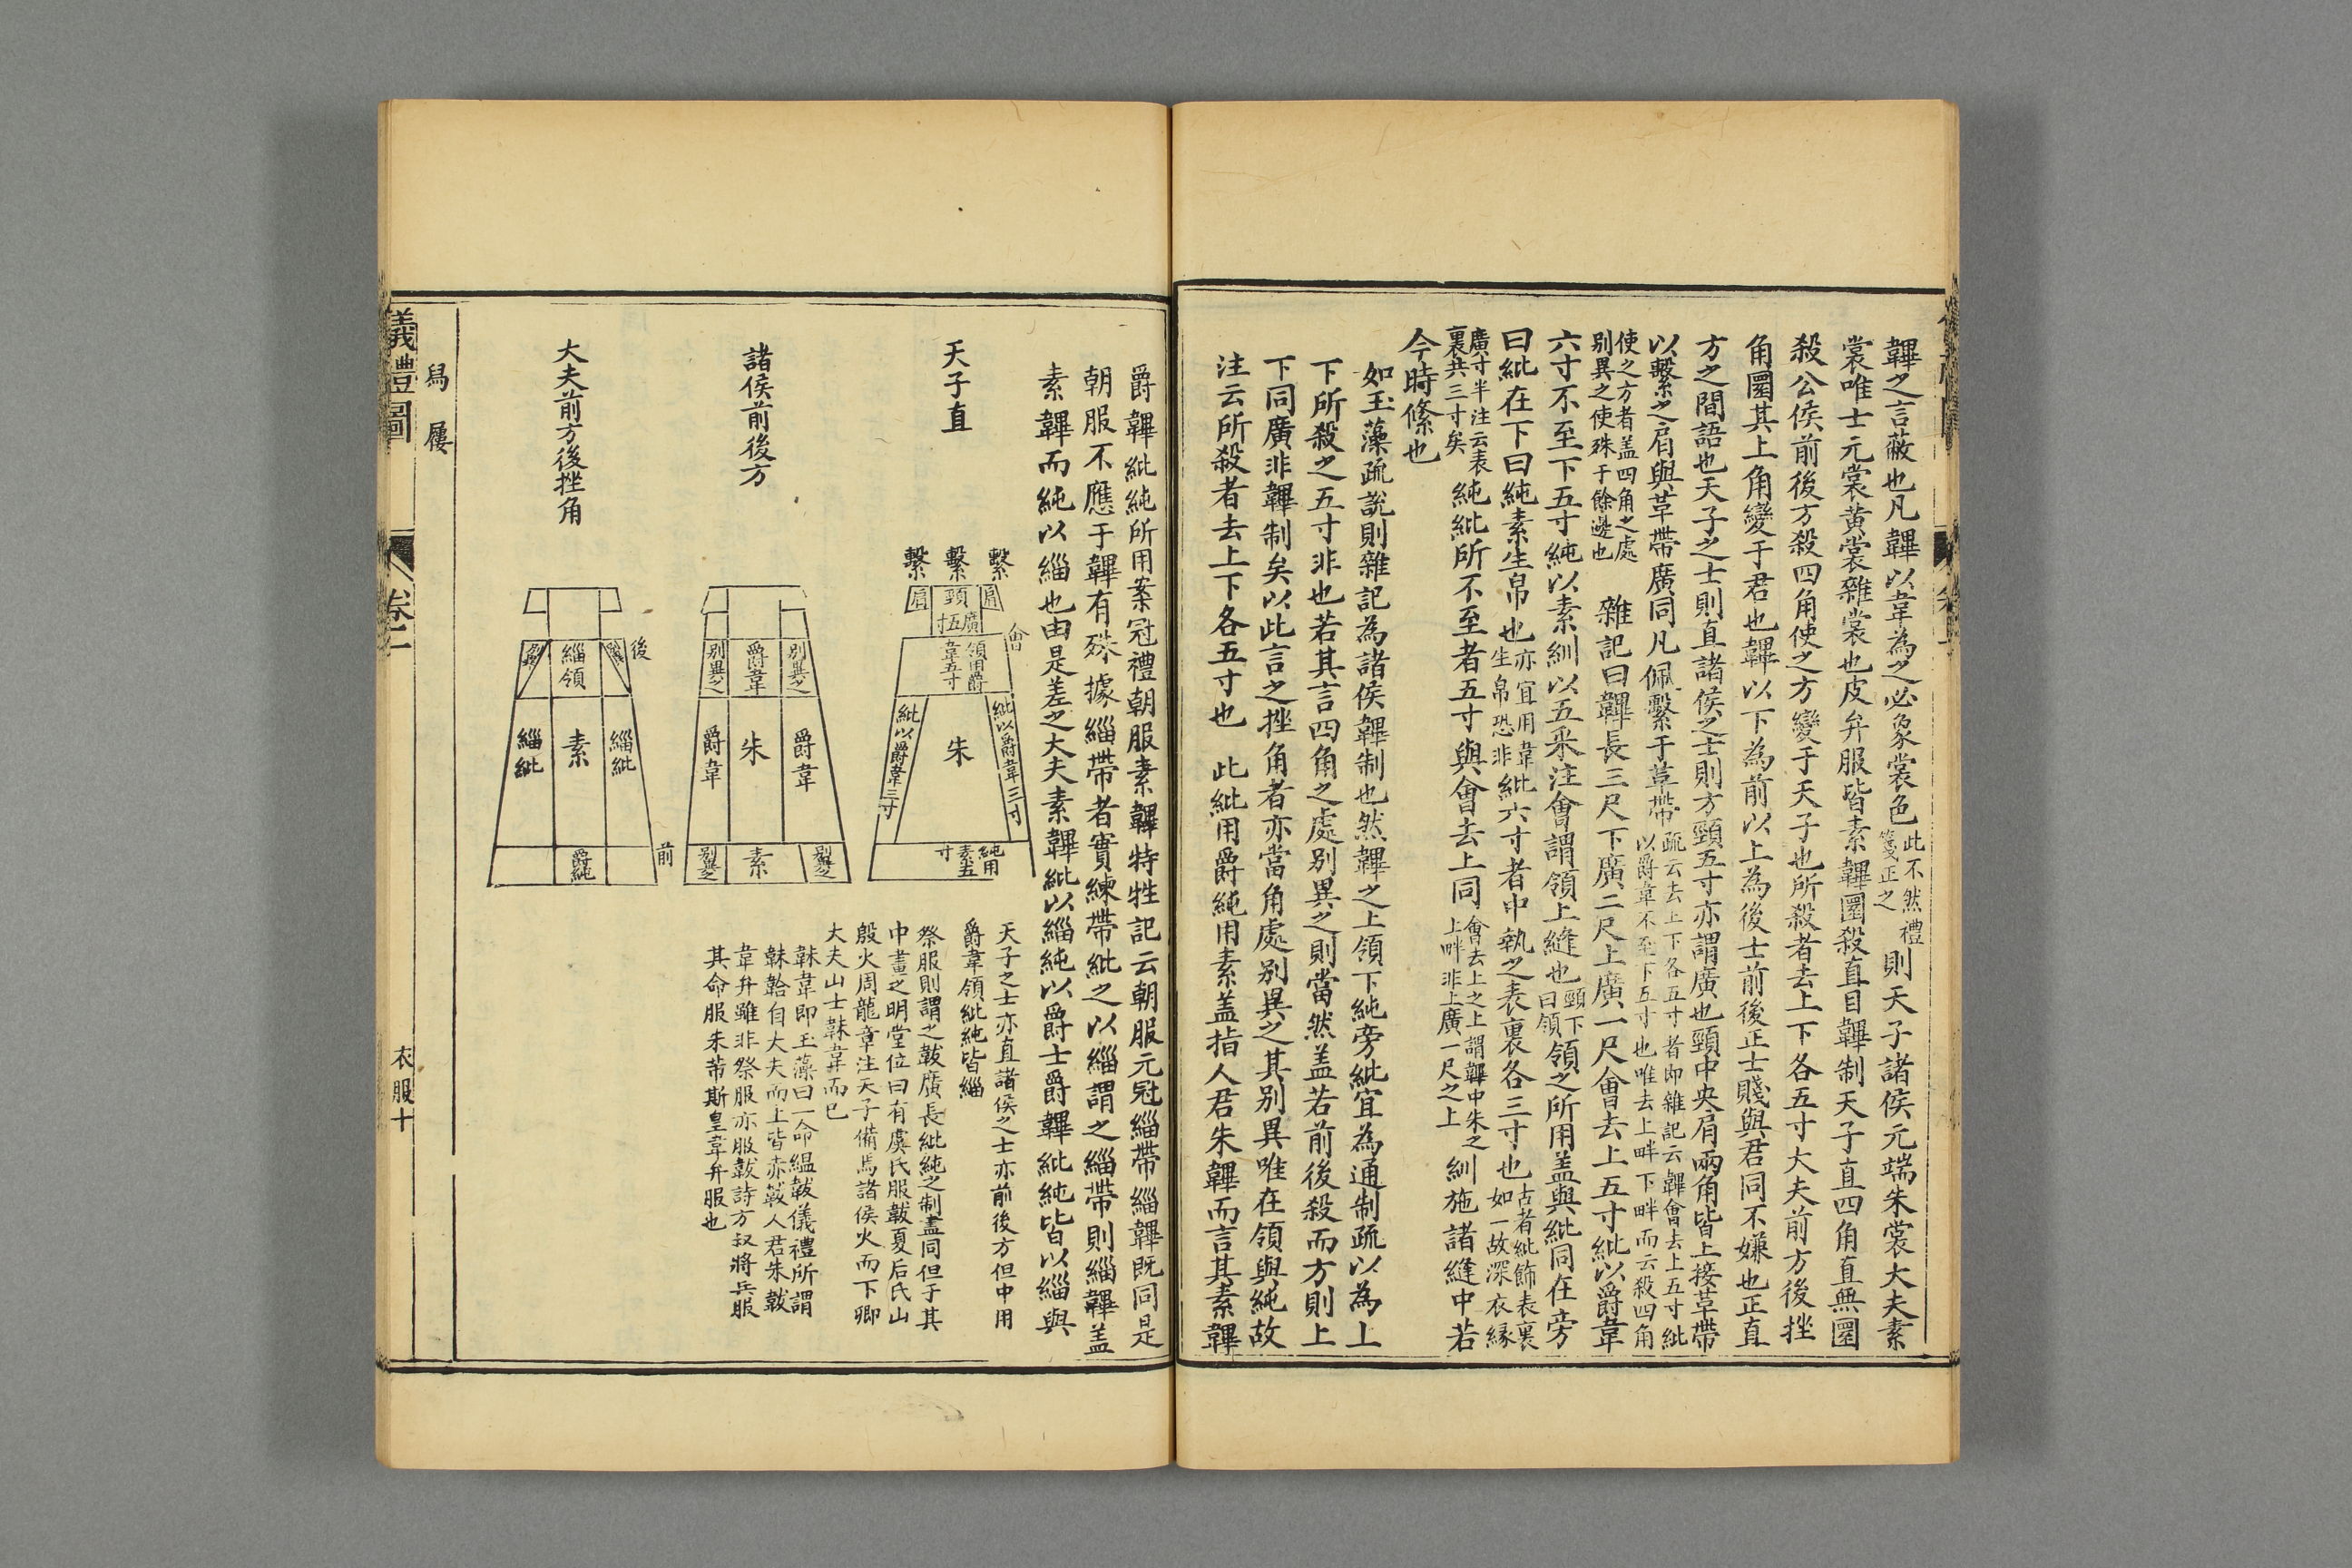 韠之言蔽也凡韠以韋為之必象裳色此不然禮箋正之則天子諸侯元端朱裳大夫素
裳唯士元裳黄裳雜裳也皮弁服皆素韠圜殺直目韠制天子直四角直無圜
殺公侯前後方殺四角使之方變于天子也所殺者去上下各五寸大夫前方後挫
角圜其上角變于君也韠以下為前以上為後士前後正士賤與君同不嫌也正直
方之間語也天子之士則直諸侯之士則方頸五寸亦謂廣也頸中央肩兩角皆上接革帶
以繫之肩與革帶廣同凡佩繫于革帶疏云去上下各五寸者即雜記云韠會去上五寸紕以爵韋不至下五寸也唯去上畔下畔而云殺四角
使之方者盖四角之處别異之使殊于餘邊也 雜記曰韠長三尺下廣二尺上廣一尺會去上五寸紕以爵韋
六寸不至下五寸純以素紃以五采注會謂領上縫也頸下曰領領之所用盖與紕同在旁
曰紕在下曰純素生帛也亦宜用韋生帛恐非紕六寸者中執之表裏各三寸也古者紕飾表裏如一故深衣緣
廣寸半注云表裏共三寸矣純紕所不至者五寸與會去上同會去上之上謂韠中朱之上畔非上廣一尺之上紃施諸縫中若
今時絛也
如玉藻疏説則雜記為諸侯韠制也然韠之上領下純旁紕宜為通制疏以為上
下所殺之五寸非也若其言四角之處别異之則當然盖若前後殺而方則上
下同廣非韠制矣以此言之挫角者亦當角處别異之其别異唯在領與純故
注云所殺者去上下各五寸也 此紕用爵純用素盖指人君朱韠而言其素韠
爵韠紕純所用案冠禮朝服素韠特牲記云朝服元冠緇帶緇韠既同是
朝服不應于韠有殊據緇帶者實練帶紕之以緇謂之緇帶則緇韠盖
素韠而純以緇也由是差之大夫素韠紕以緇純以爵士爵韠紕純皆以緇與
天子直
繫
繫
繫
肩
頸
肩
廣五寸
會
領用爵韋五寸
紕以爵韋三寸
朱
紕以爵韋三寸
純用素五寸
天子之士亦直諸侯之士亦前後方但中用
爵韋領紕純皆緇
祭服則謂之韍廣長紕純之制盡同但于其
中畫之明堂位曰有虞氏服韍夏后氏山
殷火周龍章注天子備焉諸侯火而下卿
大夫山士韎韋而已
韎韋即玉藻曰一命緼韍儀禮所謂
韎韐自大夫而上皆赤韍人君朱韍
韋弁雖非祭服亦服韍詩方叔將兵服
其命服朱芾斯皇韋弁服也
諸侯前後方
别異之
爵韋
别異之
爵韋
朱
爵韋
别異之
素
别異之
大夫前方後挫角
後
緇領
緇紕
素
緇紕
爵純
前
舄屨
儀禮圖
卷二
衣服十